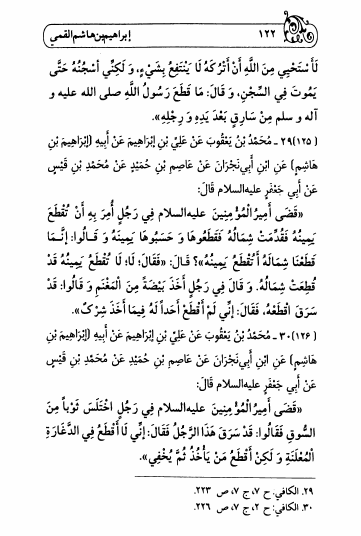 ۱۲۲ ابراهیم بن هاشم القمی
لَأَسْتَحْيِي مِنَ اللَّهِ أَنْ أَتْرُكَهُ لَا يَنْتَفِعُ بِشَيْءٍ، وَ لَكِنِّي أَسْجُنُهُ حَتَّى
يَمُوتَ فِي السِّجْنِ، وَ قَالَ: مَا قَطَعَ رَسُولُ اللَّهِ صلی الله علیه و
آله و سلم مِنْ سَارِقٍ بَعْدَ يَدِهِ وَ رِجْلِهِ».
(۱۲۵) ۲۹ ـ مُحَمَّدُ بْنُ يَعْقُوبَ عَنْ عَلِيِّ بْنِ إِبْرَاهِيمَ عَنْ أَبِيهِ (إِبْرَاهِيمَ بْنِ
هَاشِمٍ) عَنِ ابْنِ أَبِي نَجْرَانَ عَنْ عَاصِمِ بْنِ حُمَيْدٍ عَنْ مُحَمَّدِ بْنِ قَيْسٍ
عَنْ أَبِي جَعْفَرٍ علیه‌السلام قَالَ:
«قَضَى أَمِيرُ الْمُؤْمِنِينَ علیه‌السلام فِي رَجُلٍ أُمِرَ بِهِ أَنْ تُقْطَعَ
يَمِينُهُ فَقُدِّمَتْ شِمَالُهُ فَقَطَعُوهَا وَ حَسَبُوهَا يَمِينَهُ وَ قَالُوا: إِنَّمَا
قَطَعْنَا شِمَالَهُ أَ تُقْطَعُ يَمِينُهُ»؟ قَالَ: «فَقَالَ: لَا؛ لَا تُقْطَعُ يَمِينُهُ قَدْ
قُطِعَتْ شِمَالُهُ. وَ قَالَ فِي رَجُلٍ أَخَذَ بَيْضَةً مِنَ الْمَغْنَمِ وَ قَالُوا: قَدْ
سَرَقَ اقْطَعْهُ، فَقَالَ: إِنِّي لَمْ أَقْطَعْ أَحَداً لَهُ فِيمَا أَخَذَ شِرْكٌ».
(۱۲۶) ۳۰ ـ مُحَمَّدُ بْنُ يَعْقُوبَ عَنْ عَلِيِّ بْنِ إِبْرَاهِيمَ عَنْ أَبِيهِ (إِبْرَاهِيمَ بْنِ
هَاشِمٍ) عَنِ ابْنِ أَبِي نَجْرَانَ عَنْ عَاصِمِ بْنِ حُمَيْدٍ عَنْ مُحَمَّدِ بْنِ قَيْسٍ
عَنْ أَبِي جَعْفَرٍ علیه‌السلام قَالَ:
«قَضَى أَمِيرُ الْمُؤْمِنِينَ علیه‌السلام فِي رَجُلٍ اخْتَلَسَ ثَوْباً مِنَ
السُّوقِ فَقَالُوا: قَدْ سَرَقَ هَذَا الرَّجُلُ فَقَالَ: إِنِّي لَا أَقْطَعُ فِي الدَّغَارَةِ
الْمُعْلَنَةِ وَ لَكِنْ أَقْطَعُ مَنْ يَأْخُذُ ثُمَّ يُخْفِي».
۲۹. الکافی: ح ۷، ج ۷، ص ۲۲۳.
۳۰. الکافی: ح ۲، ج ۷، ص ۲۲۶.